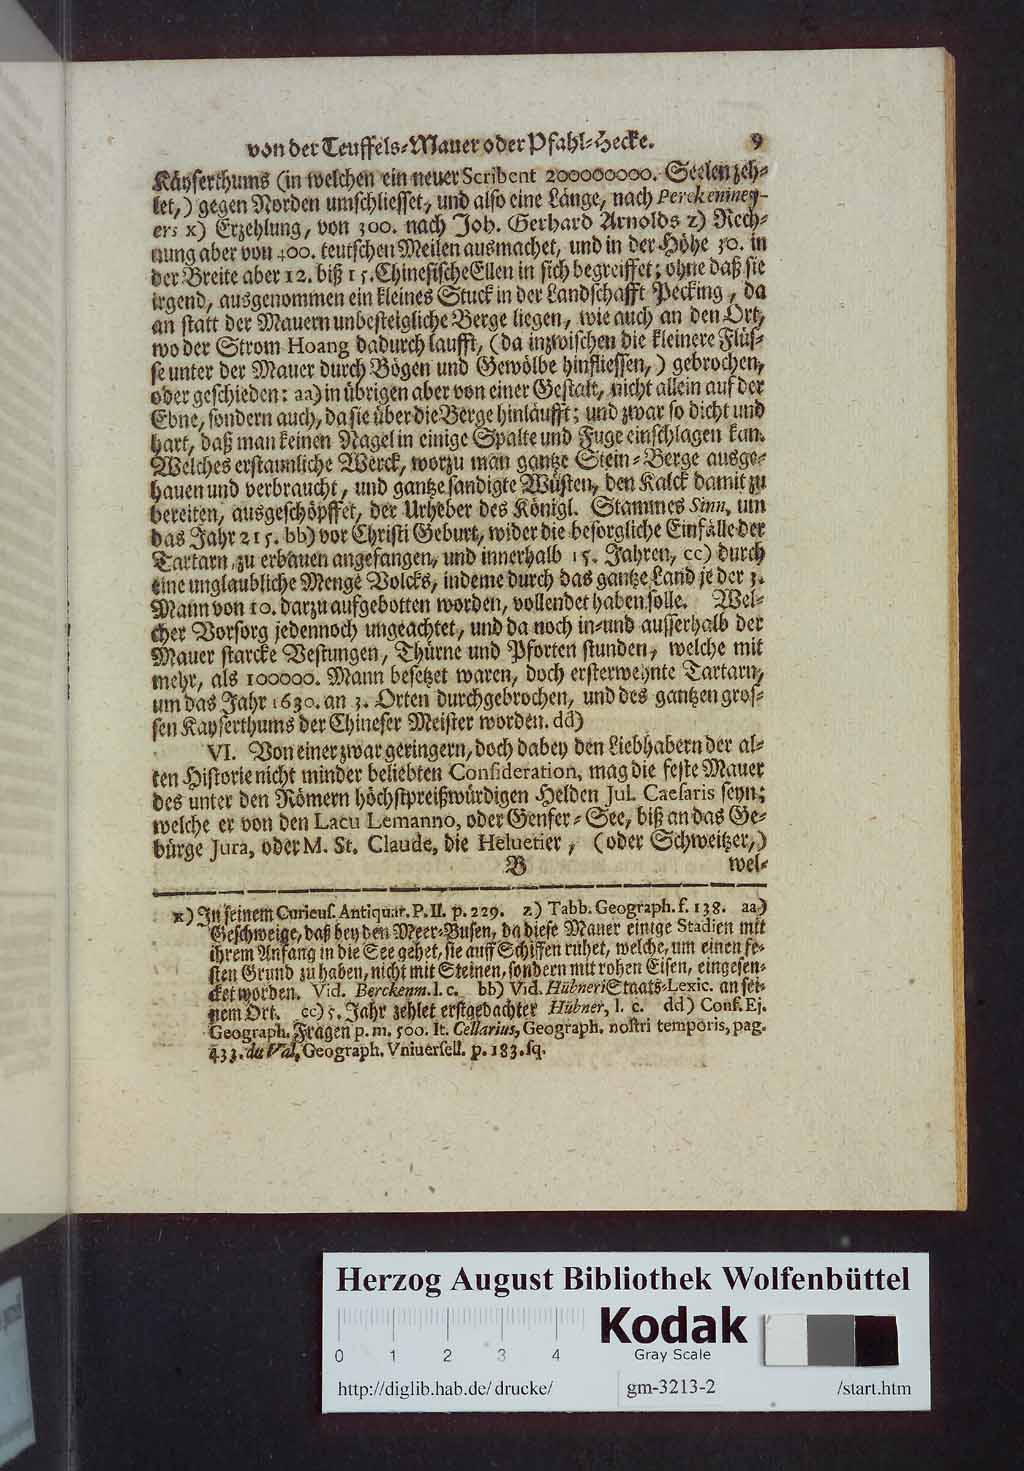 von der Teuffels-Mauer oder Pfahl-Hecke. 9
Käyserthums (in welchen ein neuer Scribent 200000000. Seelen zeh-
let,) gegen Norden umschliesset, und also eine Länge, nach Perckenmey-
ers x) Erzehlung, von 300. nach Joh. Gerhard Arnolds z) Rech-
nung aber von 400. teutschen Meilen ausmachet, und in der Höhe 30. in
der Breite aber 12. biß 15. Chinesische Ellen in sich begreiffet; ohne daß sie
irgend, ausgenommen ein kleines Stuck in der Landschafft Pecking, da
an statt der Mauern unbesteigliche Berge liegen, wie auch an den Ort,
wo der Strom Hoang dadurch laufft, (da inzwischen die kleinere Flüs-
se unter der Mauer durch Bögen und Gewölbe hinfliessen,) gebrochen,
oder geschieden: aa) in übrigen aber von einer Gestalt, nicht allein auf der
Ebne, sondern auch, da sie über die Berge hinläufft; und zwar so dicht und
hart, daß man keinen Nagel in einige Spalte und Fuge einschlagen kan.
Welches erstaunliche Werck, worzu man gantze Stein-Berge ausge-
hauen und verbraucht, und gantze sandigte Wüsten, den Kalck damit zu
bereiten, ausgeschöpffet, der Urheber des Königl. Stammes Sinn, um
das Jahr 215. bb) vor Christi Geburt, wider die besorgliche Einfälle der
Tartarn, zu erbauen angefangen, und innerhalb 15. Jahren, cc) durch
eine unglaubliche Menge Volcks, indeme durch das gantze Land je der 3.
Mann von 10. darzu aufgebotten worden, vollendet haben solle. Wel-
cher Vorsorg jedennoch ungeachtet, und da noch in-und ausserhalb der
Mauer starcke Vestungen, Thürne und Pforten stunden, welche mit
mehr, als 100000. Mann besetzet waren, doch ersterwehnte Tartarn,
um das Jahr 1630. an 3. Orten durchgebrochen, und des gantzen gros-
sen Kayserthums der Chineser Meister worden. dd)
VI. Von einer zwar geringern, doch dabey den Liebhabern der al-
ten Historie nicht minder beliebten Consideration, mag die feste Mauer
des unter den Römern höchstpreißwürdigen Helden Jul. Caesaris seyn;
welche er von den Lacu Lemanno, oder Genfer-See, biß an das Ge-
bürge Jura, oder M. St. Claude, die Heluetier, (oder Schweitzer,)
B wel-
x) In seinem Curieus. Antiquar. P. II. p. 229. z) Tabb. Geograph. f. 138. aa)
Geschweige, daß bey den Meer-Busen, da diese Mauer einige Stadien mit
ihrem Anfang in die See gehet, sie auff Schiffen ruhet, welche, um einen fe-
sten Grund zu haben, nicht mit Steinen, sondern mit rohen Eisen, eingesen-
cket worden. Vid. Berckenm. l. c. bb) Vid. Hübneri Staats-Lexic. an sei-
nem Ort. cc) 5. Jahr zehlet erstgedachter Hübner, l. c. dd) Conf. Ej.
Geograph. Fragen p. m. 500. It. Cellarius, Geograph. nostri temporis, pag.
433. du Val, Geograph. Vniuersell. p. 183. sq.
Herzog August Bibliothek Wolfenbüttel
0 1 2 3 4
Kodak
Gray Scale
http://diglib.hab.de/drucke/ gm-3213-2 /start.htm